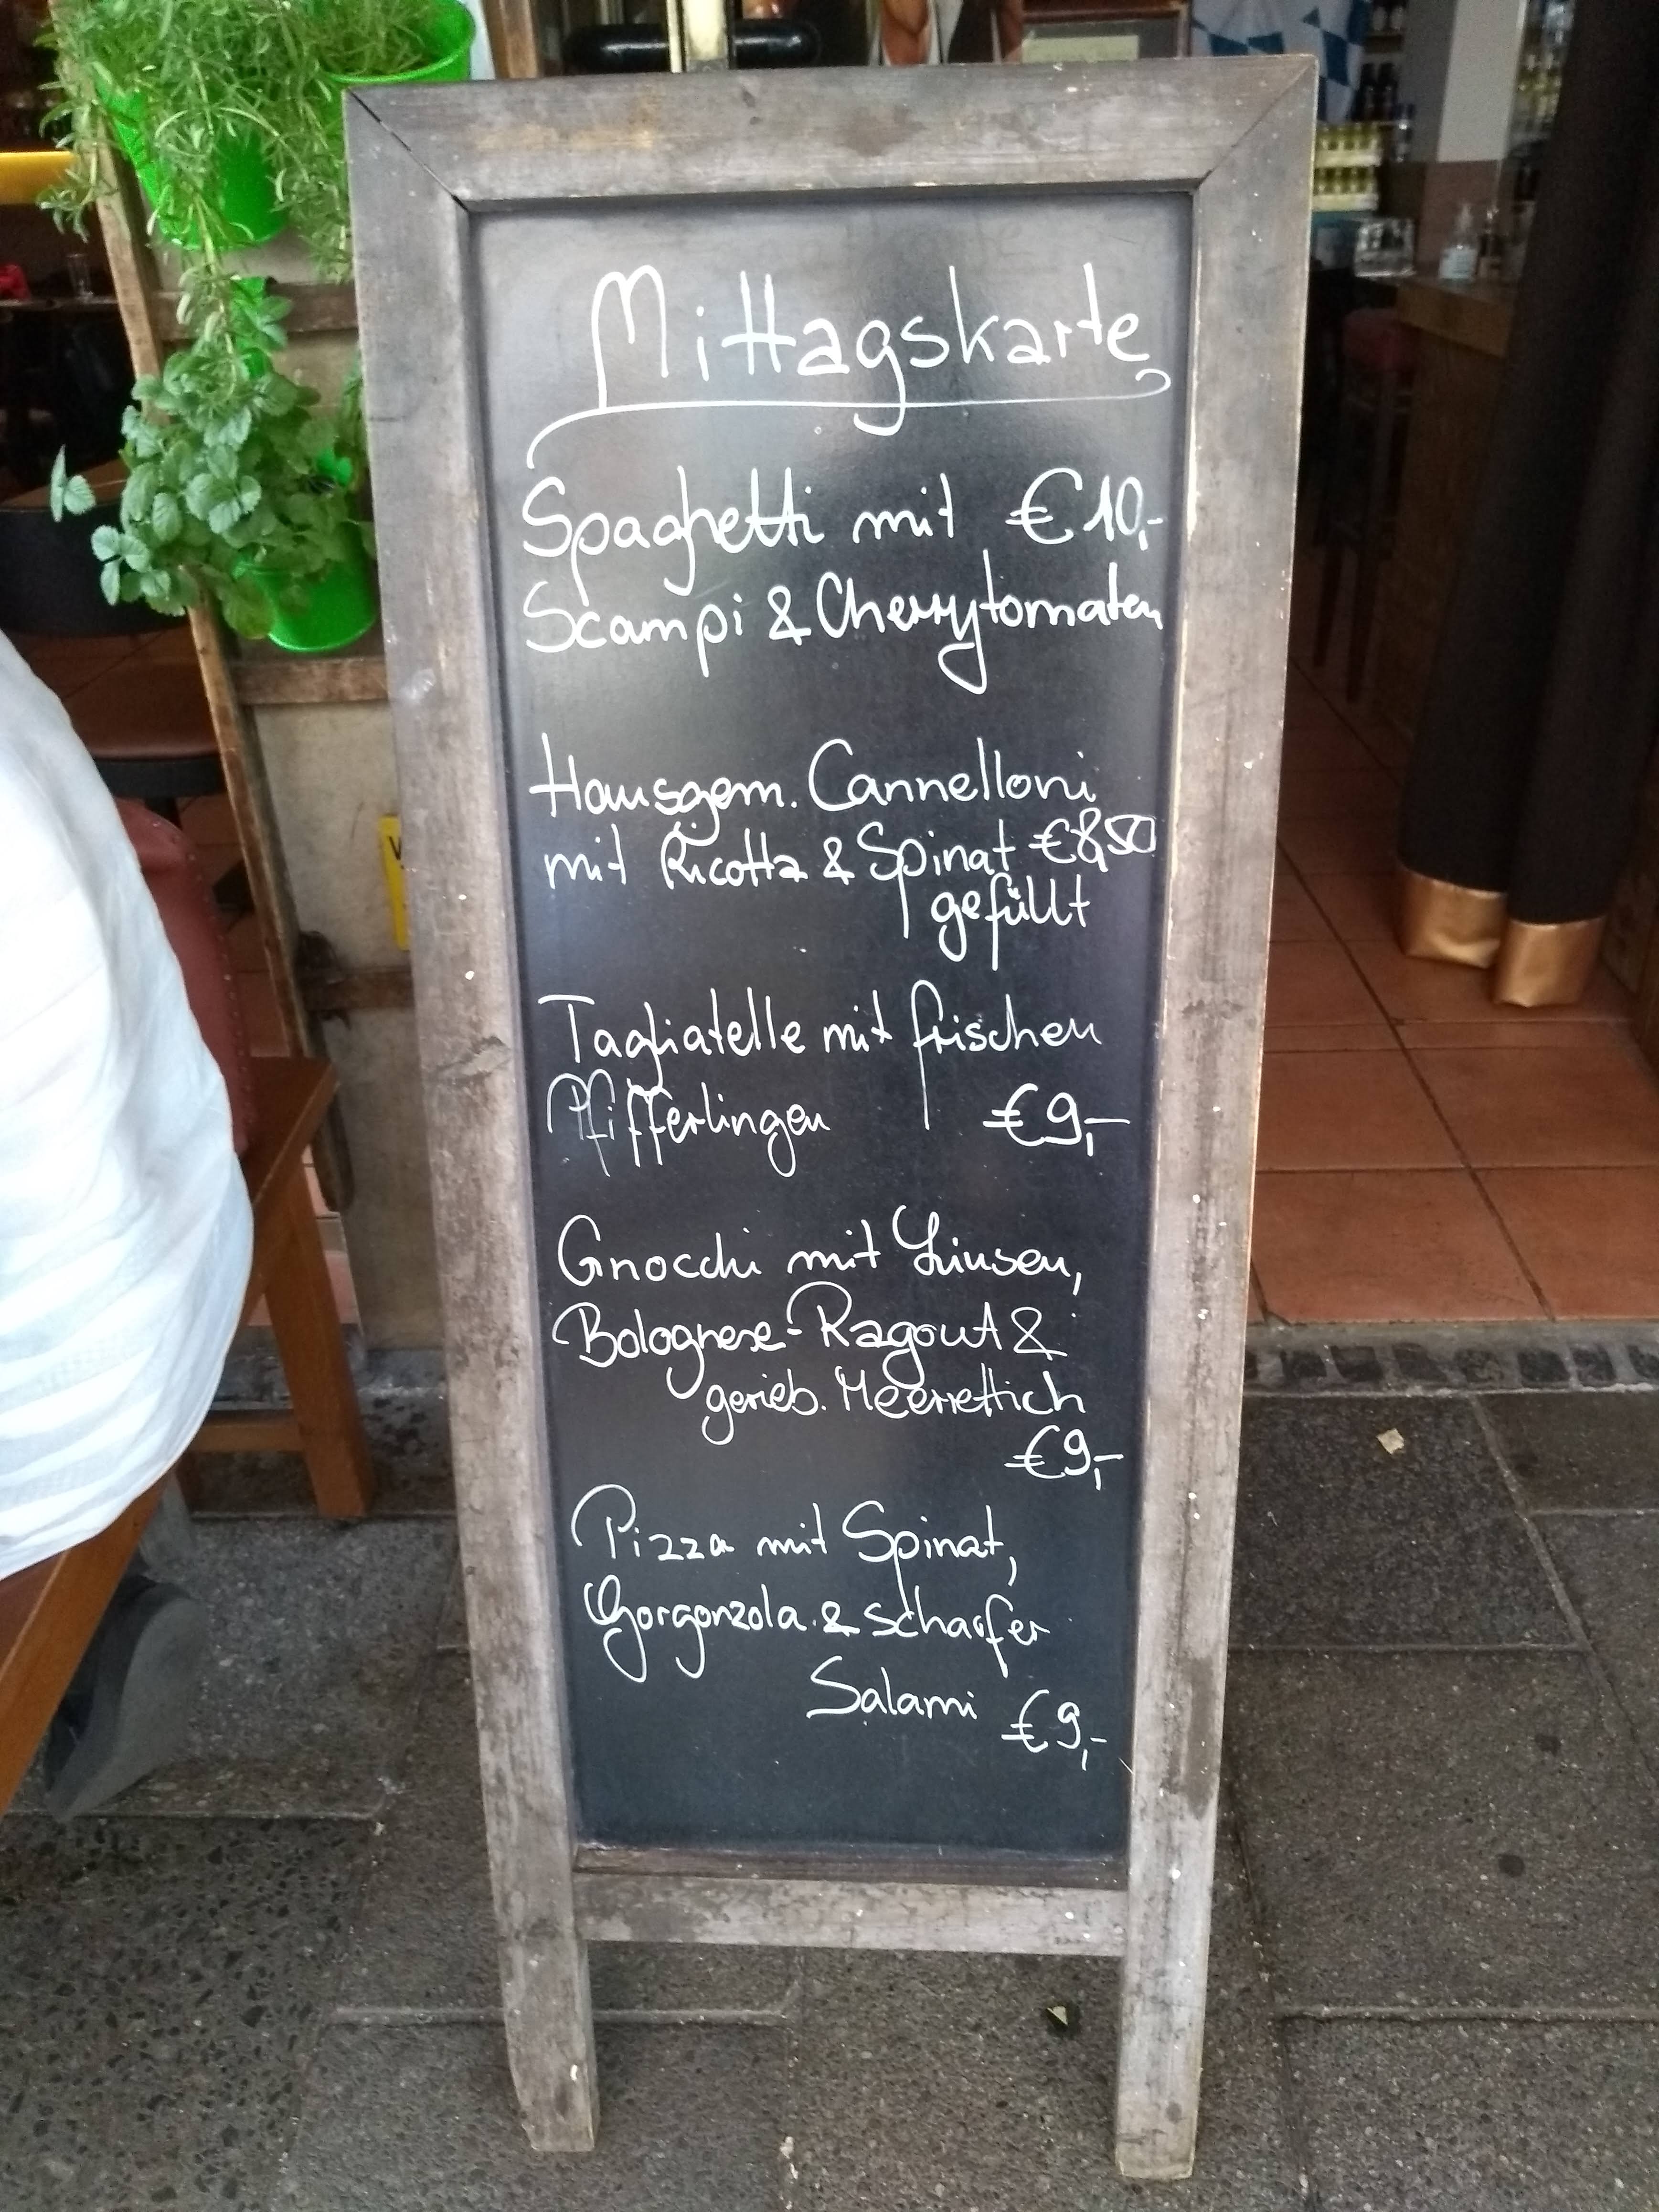 Mittagskarte
Spaghetti mit €10,-
Scampi & Cherrytomaten
Hausgem. Cannelloni
mit Ricotta & Spinat €8,50
gefüllt
Tagliatelle mit frischen
Pfifferlingen €9,-
Gnocchi mit Linsen,
Bolognese-Ragout &
gerieb. Meerrettich
€9,-
Pizza mit Spinat,
Gorgonzola & scharfer
Salami €9,-